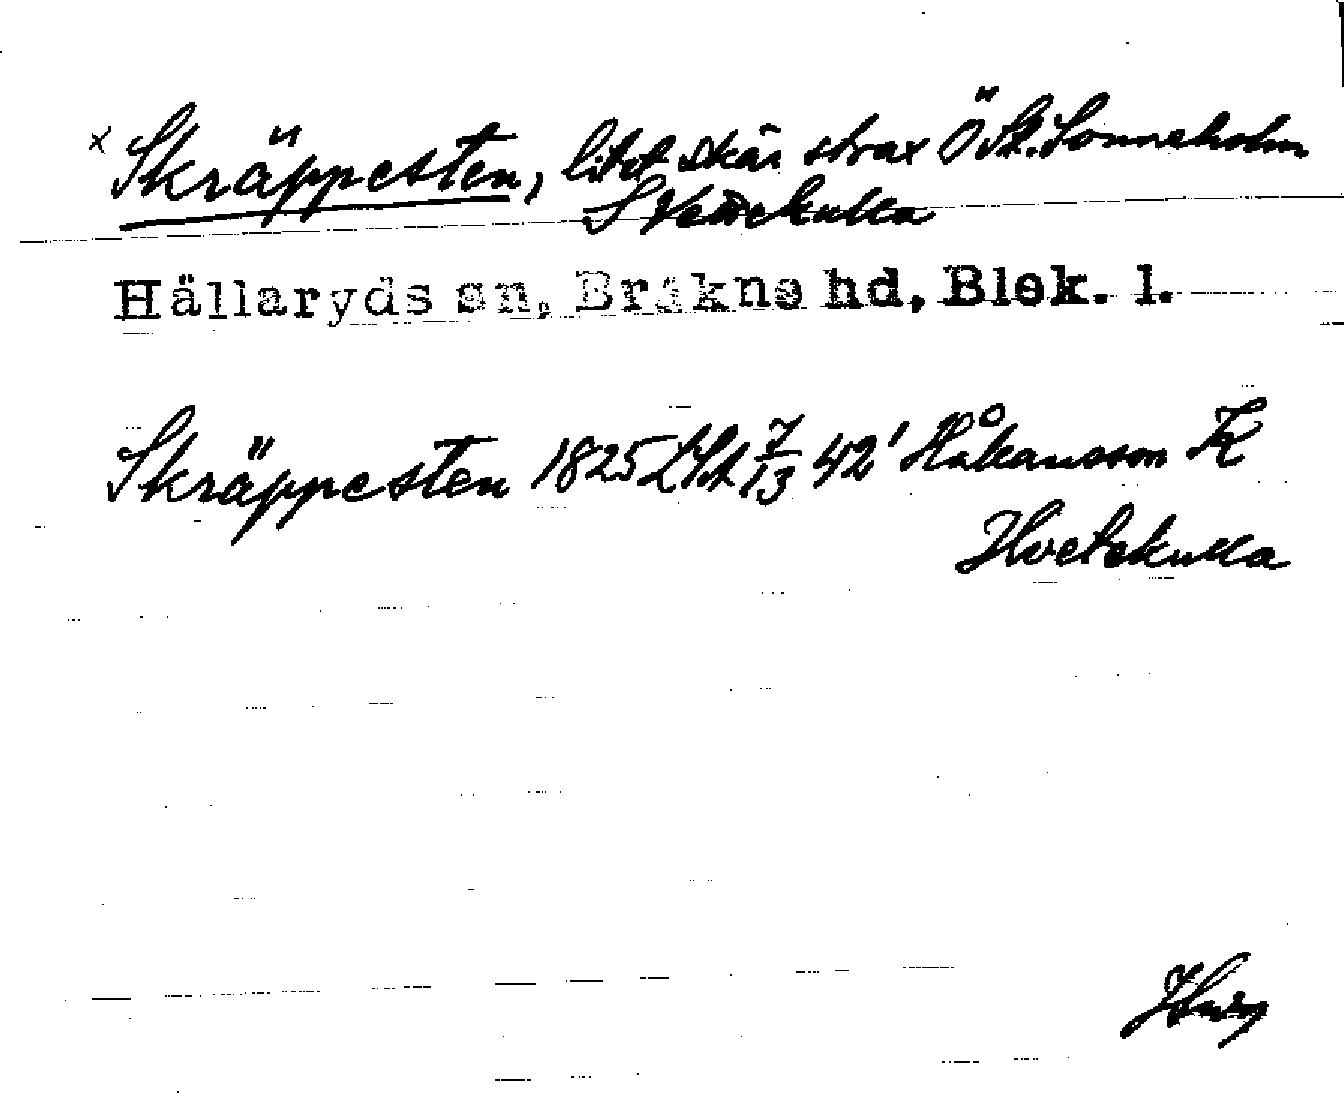 x Skräppesten, litet skär strax Ö St. Sonneholm
S Vettekulla
Hällaryds sn, Bräkne hd, Blek. l.
Skräppesten 1825 LSt 7/13 42' Håkansson K
Hvetekulla